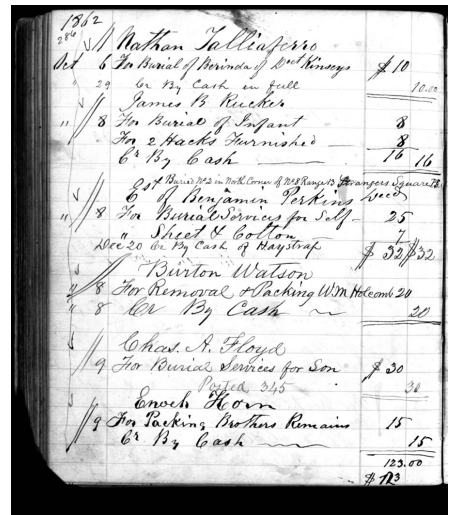 1862
286
Nathan Talliaferro
Oct 6 For Burial of Berinda of Dect Kinseys $10
" 29 Cr By Cash in full 10.00
James B Rucker
" 8 For Burial of Infant 8
For 2 Hacks Furnished 8
Cr By Cash 16 16
Buried No 2 in North Corner of No 8 Range 13 Strangers Square
Est of Benjamin Perkins Decd
" 8 For Burial Services for Self 25
" Sheet & Cotton 7
Dec 20 Cr By Cash of Haystraf $32 $32
Burton Watson
" 8 For Removal & Packing W.M Holcomb 20
" 8 Cr By Cash 20
Chas. A. Floyd
9 For Burial Services for Son $30
Posted 345 30
Enoch Horn
9 For Packing Brothers Remains 15
Cr By Cash 15
123.00
$ 123